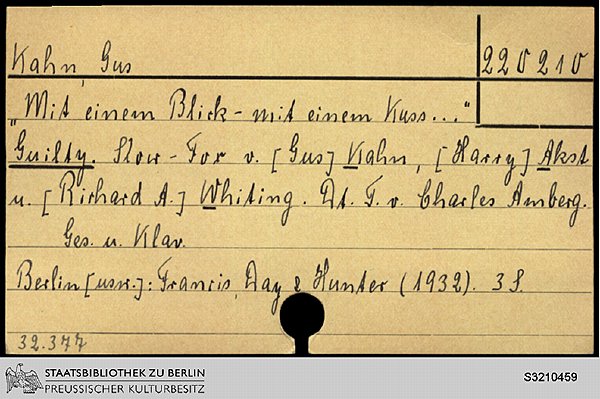 Kahn, Gus
220210
"Mit einem Blick - mit einem Kuss..."
Guilty. Slow-Fox v. [Gus] Kahn, [Harry] Akst
u. [Richard A.] Whiting. Dt. T. v. Charles Amberg.
Ges. u. Klav.
Berlin [usw.]: Francis, Day & Hunter (1932). 3 S.
32.377
STAATSBIBLIOTHEK ZU BERLIN
PREUSSISCHER KULTURBESITZ
S3210459